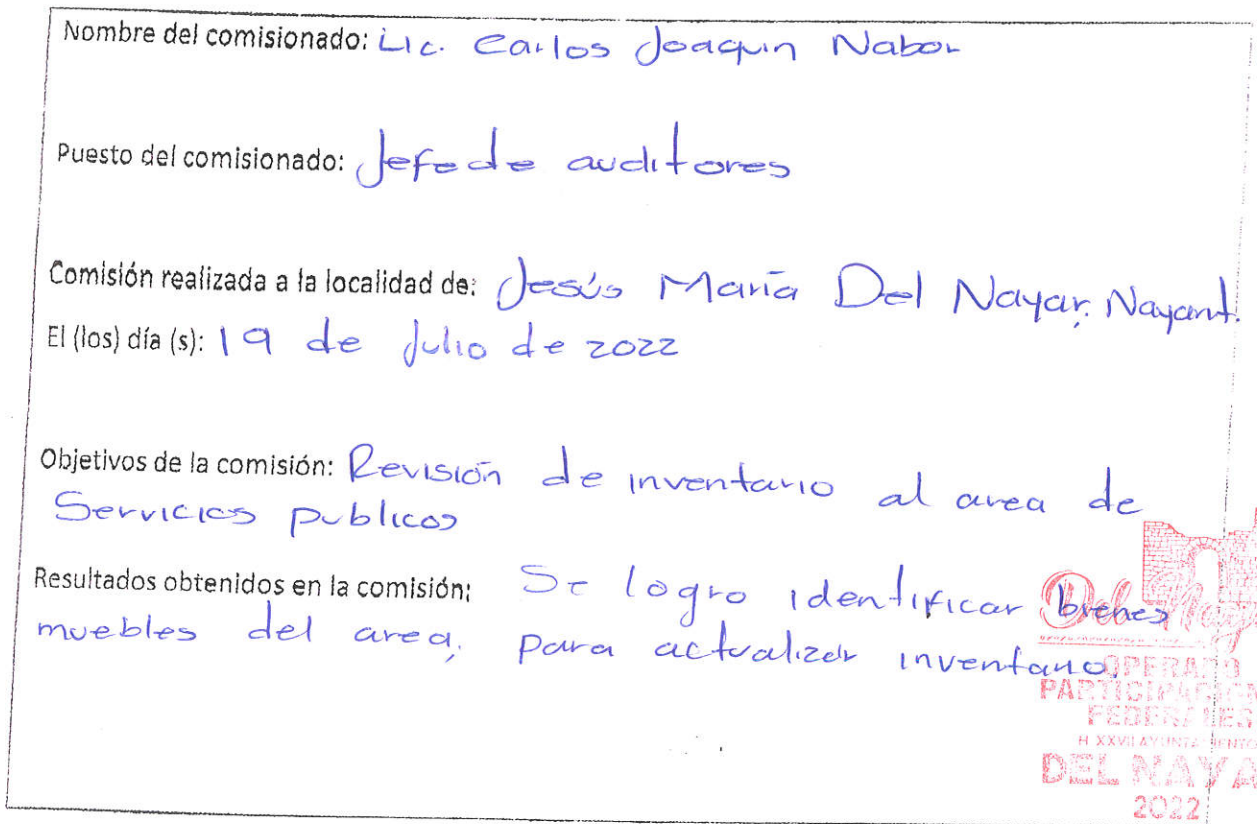 Nombre del comisionado: Lic. Carlos Joaquin Nabor
Puesto del comisionado: Jefe de auditores
Comisión realizada a la localidad de: Jesús María Del Nayar, Nayarit.
El (los) día (s): 19 de Julio de 2022
Objetivos de la comisión: Revisión de inventario al area de
Servicios publicos
Resultados obtenidos en la comisión: Se logro identificar bienes
muebles del area, para actualizar inventario.
Del Naya
OPERADO
PARTICIPACION
FEDERALES
H XXVII AYUNTAMIENTO
DEL NAYA
2022